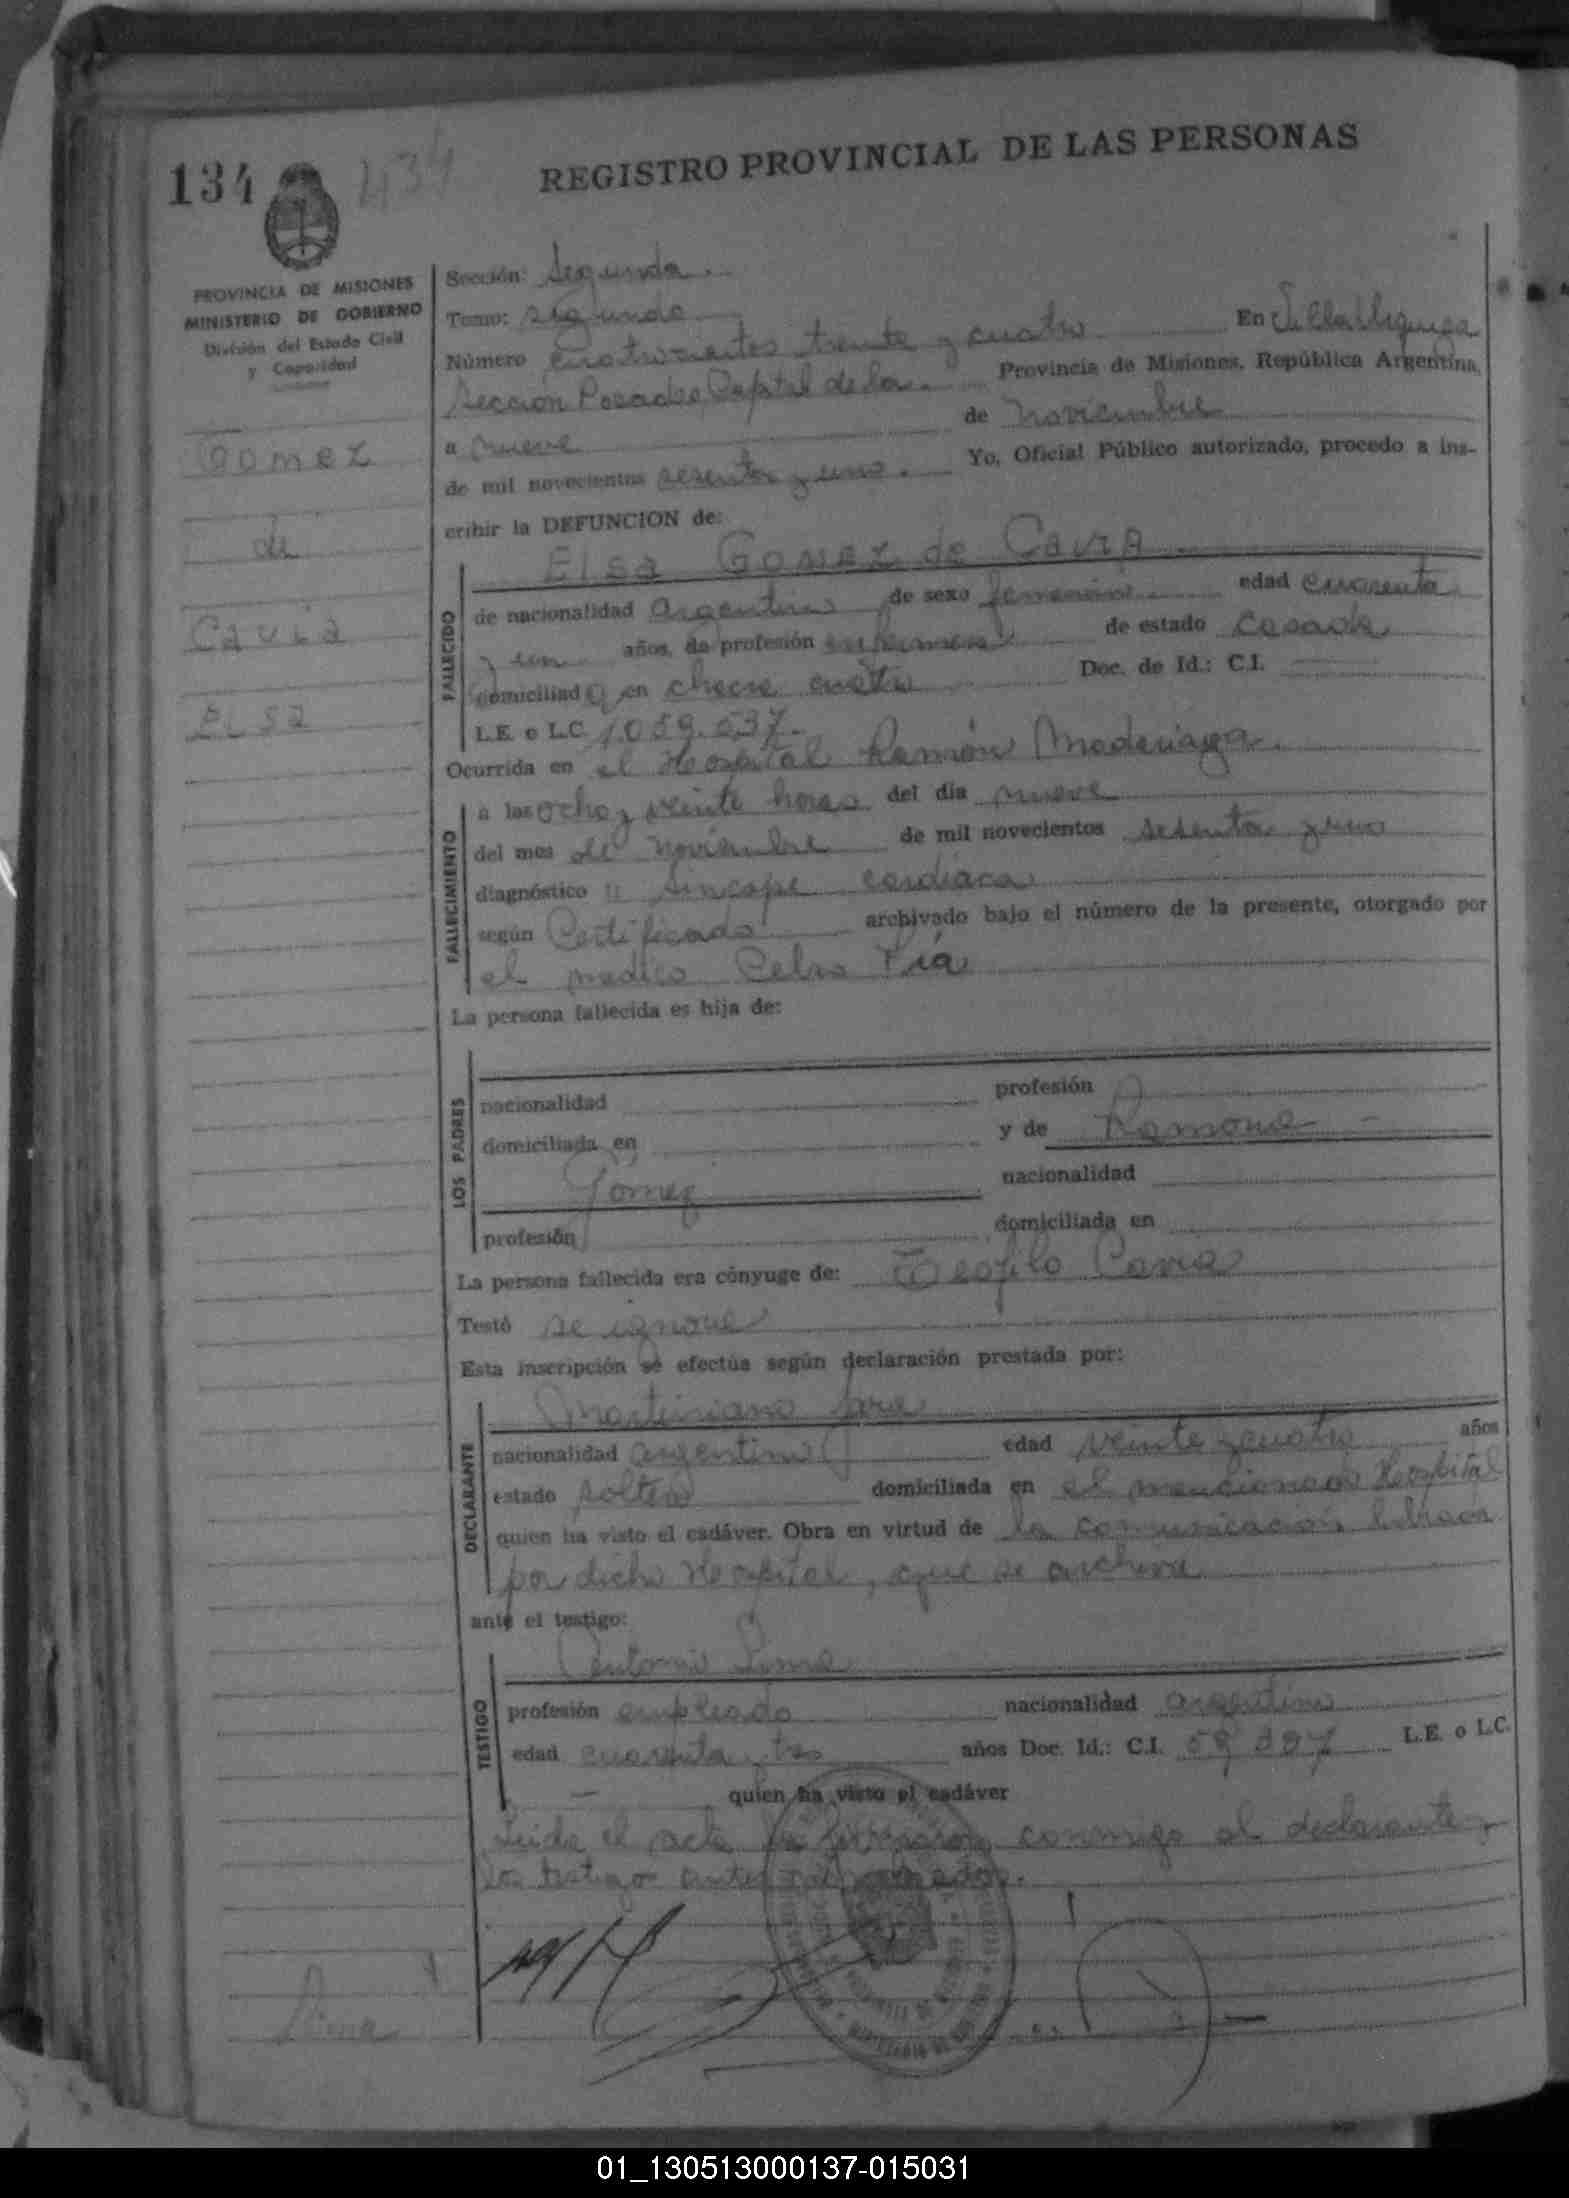 134 434
REGISTRO PROVINCIAL DE LAS PERSONAS
PROVINCIA DE MISIONES
MINISTERIO DE GOBIERNO
División del Estado Civil
y Capacidad
Gomez
de
Cavia
Elsa
Sección: Segunda.
Tomo: segundo
Número cuatrocientos treinta y cuatro En Villa Urquiza
Sección Posadas Capital de la Provincia de Misiones, República Argentina,
a nueve de noviembre
de mil novecientos sesenta y uno. Yo, Oficial Público autorizado, procedo a ins-
cribir la DEFUNCION de:
Elsa Gomez de Cavia
FALLECIDO
de nacionalidad argentina de sexo femenino edad cuarenta
y un años, de profesión enfermera de estado casada
domiciliada en chacra cuatro Doc. de Id.: C.I.
L.E. o L.C. 1.059.537.-
Ocurrida en el Hospital Ramón Madariaga.
FALLECIMIENTO
a las ocho y veinte horas del día nueve
del mes de noviembre de mil novecientos sesenta y uno
diagnóstico sincope cardiaca
según Certificado archivado bajo el número de la presente, otorgado por
el medico Celso Pía
La persona fallecida es hija de:
LOS PADRES
nacionalidad profesión
domiciliada en y de Ramona
Gómez nacionalidad
profesión domiciliada en
La persona fallecida era cónyuge de: Teofilo Cavia
Testó se ignora
Esta inscripción se efectúa según declaración prestada por:
DECLARANTE
Martiniano Jara
nacionalidad argentino edad veinte y cuatro años
estado soltero domiciliada en el mencionado Hospital
quien ha visto el cadáver. Obra en virtud de la comunicación librada
por dicho Hospital, que se archiva
ante el testigo:
TESTIGO
Antonio Lima
profesión empleado nacionalidad argentino
edad cuarenta años Doc. Id.: C.I. 59.397 L.E. o L.C.
quien ha visto el cadáver
Leida el acta la firmaron conmigo el declarante y
los testigo antes
Lima
01_130513000137-015031